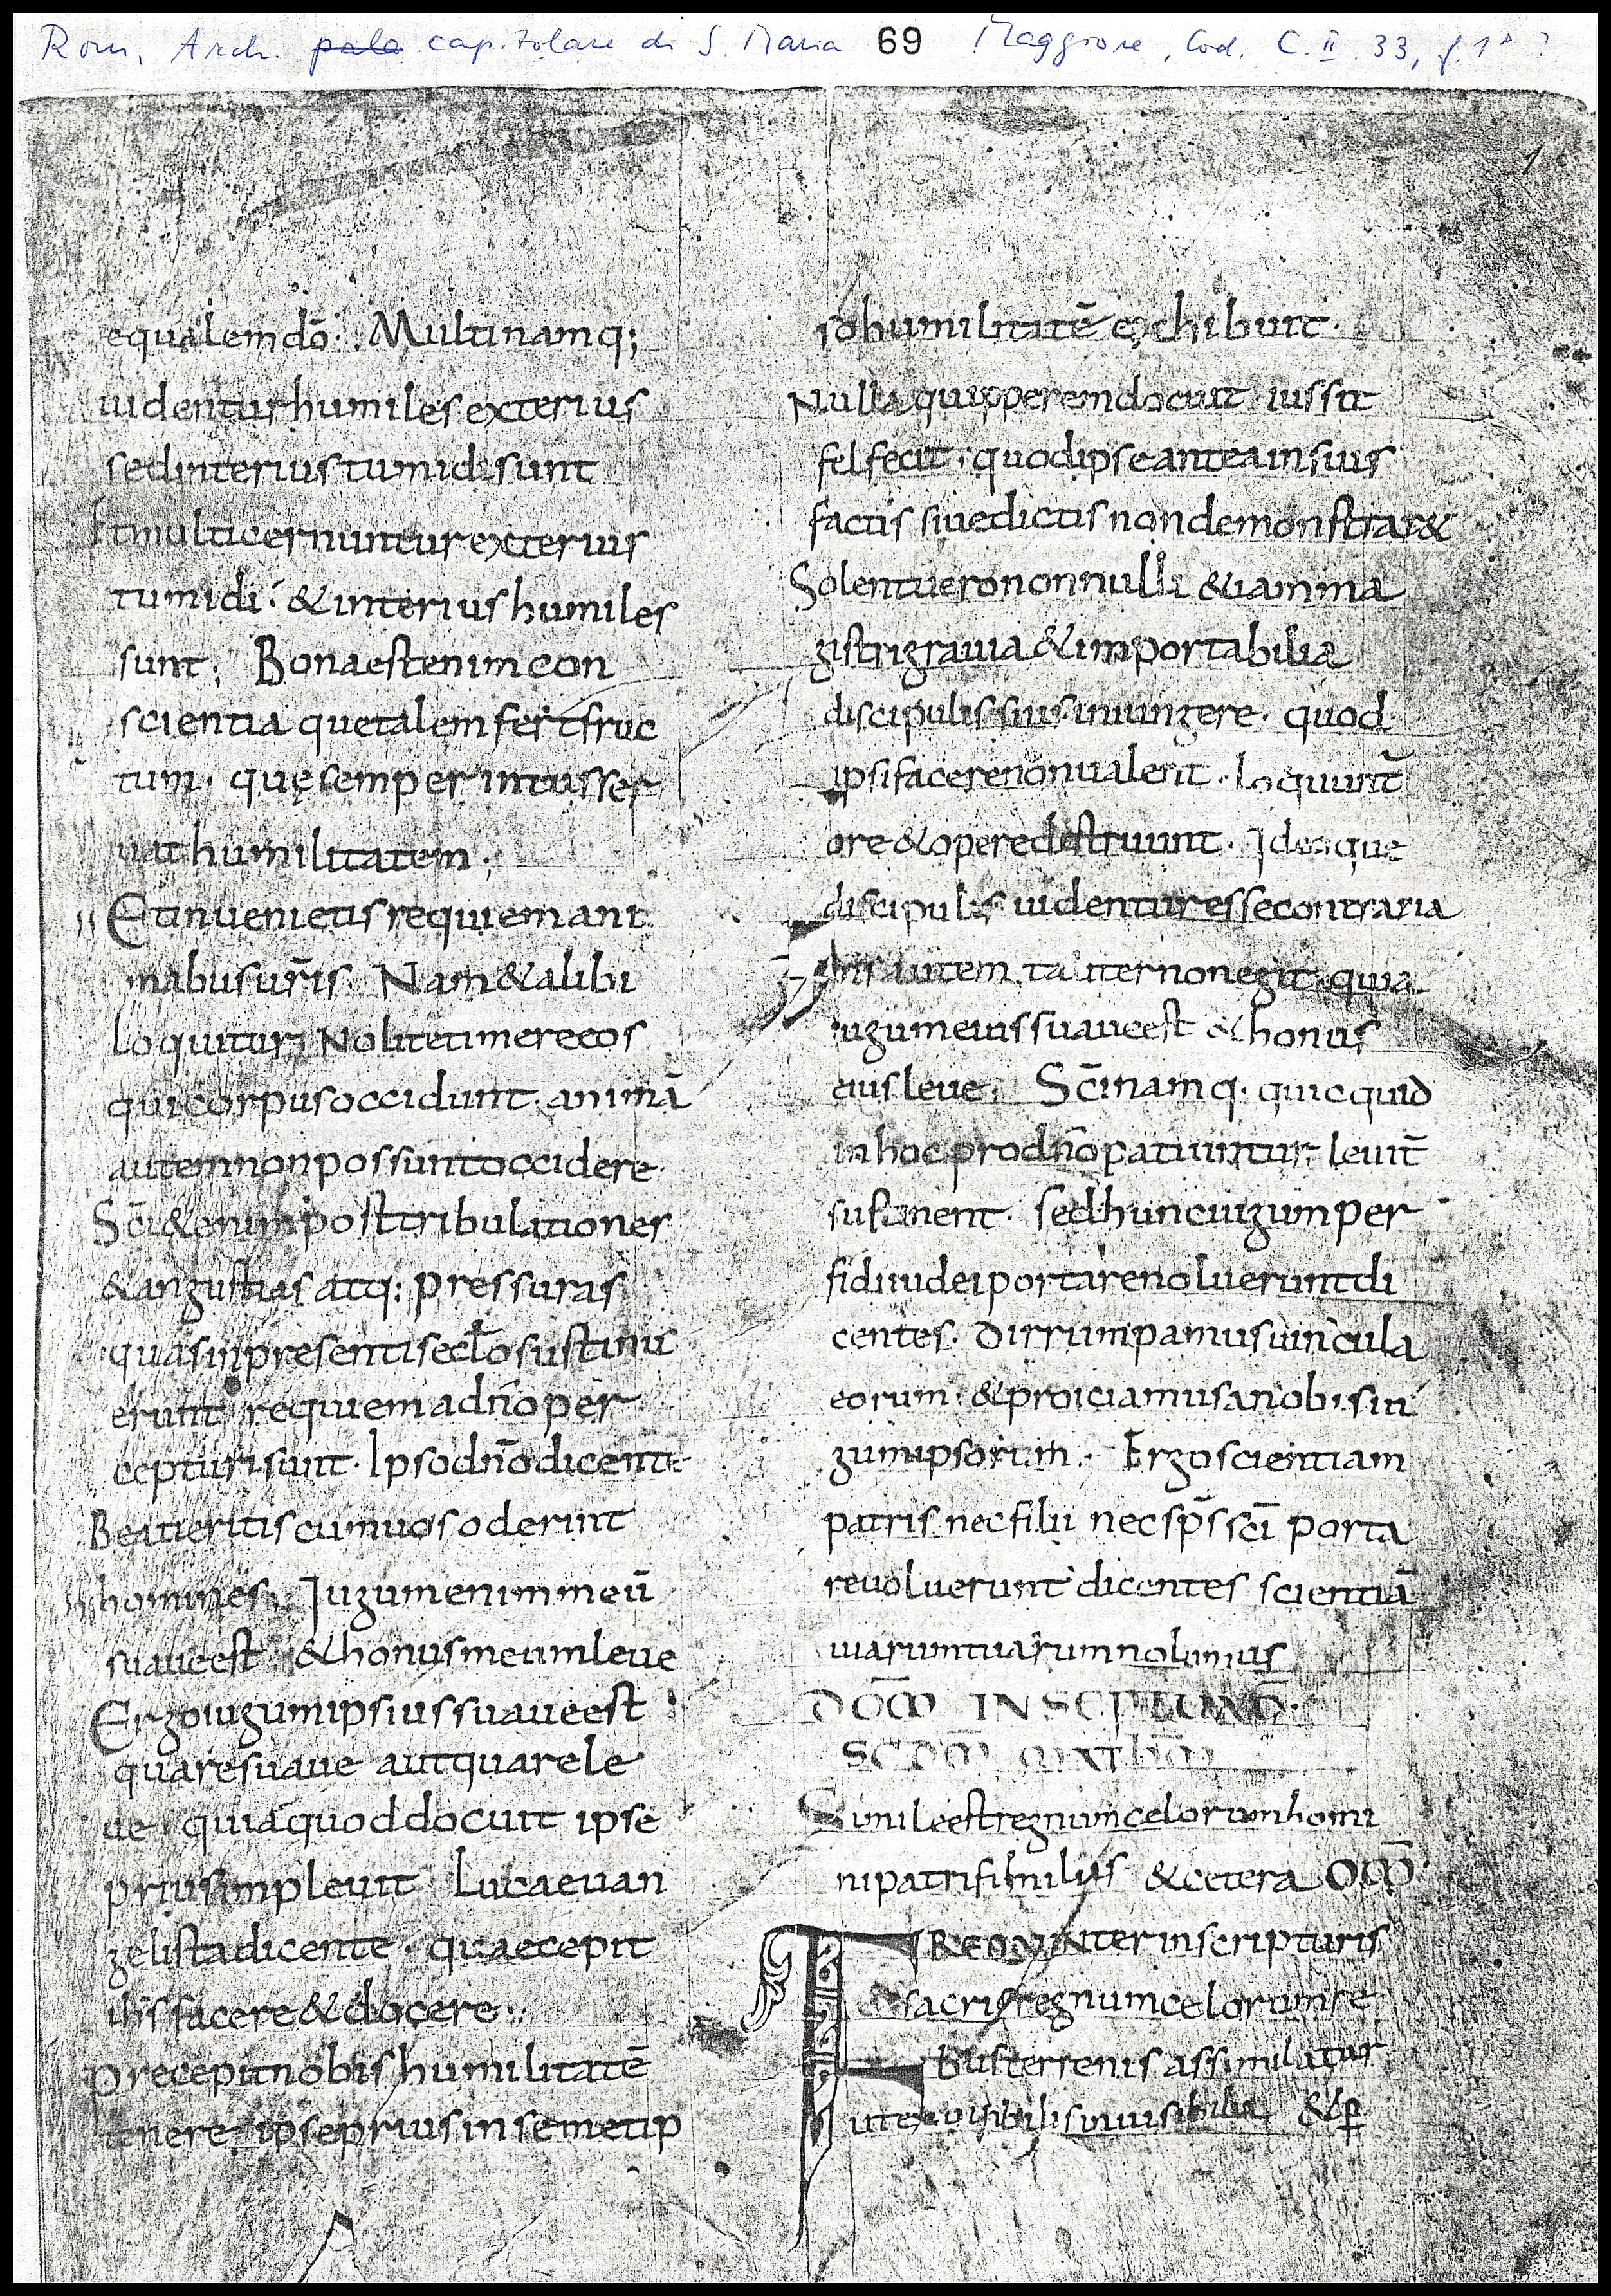 Rom, Arch. pala capitolare di S. Maria 69 Maggiore, Cod. C. II. 33, f. 1ʳ ?
1
equalem dō. Multi namq;
uidentur humiles exterius
sed interius tumidi sunt
Et multi cernuntur exterius
tumidi. & interius humiles
sunt; Bona est enim con
scientia que talem fert fruc
tum. quę semper intus ser
uat humilitatem;
Et inuenietis requiem ani
mabus ūris. Nam & alibi
loquitur; Nolite timere eos
qui corpus occidunt. animā
autem non possunt occidere.
Sc̄i & enim post tribulationes
& angustias atq: pressuras
quas in presenti seclo sustinu
erunt requiem a dn̄o per
cepturi sunt. Ipso dn̄o dicente
Beati eritis cum uos oderint
homines. Iugum enim meū
suaue est & honus meum leue
Ergo iugum ipsius suaue est
quare suaue aut quare le
ue quia quod docuit ipse
prius impleuit Luca euan
gelista dicente. quae cepit
ihs facere & docere.
Precepit nobis humilitatē
tenere. ipse prius in semetip
so humilitatē exchibuit.
Nulla quippe rem docuit iussit
fel fecit. quod ipse antea in suis
factis siue dictis non demonstrar&
Solent uero nonnulli &iam ma
gistri grauia & importabilia
discipulis suis iniungere. quod
ipsi facere non ualent. Loquunt̄
ore & opere destruunt. Ideo que
discipulis uidentur esse contraria
Dn̄s autem taliter non egit quia
iugum eius suaue est & honus
eius leue. Sc̄i namq. quicquid
in hoc pro dn̄o patiuntur leuit̄
sustinent. sed hunc iugum per
fidi iudei portare noluerunt di
centes. Dirrumpamus uincula
eorum. & proiciamus a nobis iu
gum ipsorum. Ergo scientiam
patris nec filii nec sp̄s sc̄i porta
re uoluerunt dicentes scientiā
uiarum tuarum nolumus
DOM̄ IN SEPTUAG̅.
SCDM̄ MATHM̄
Simile est regnum celorum homi
ni patri familias & cetera OM̄
FREQUENTER in scripturis
sacris regnum celorum re
bus terrenis assimilatur
ut ex uisibilis inuisibilia & p